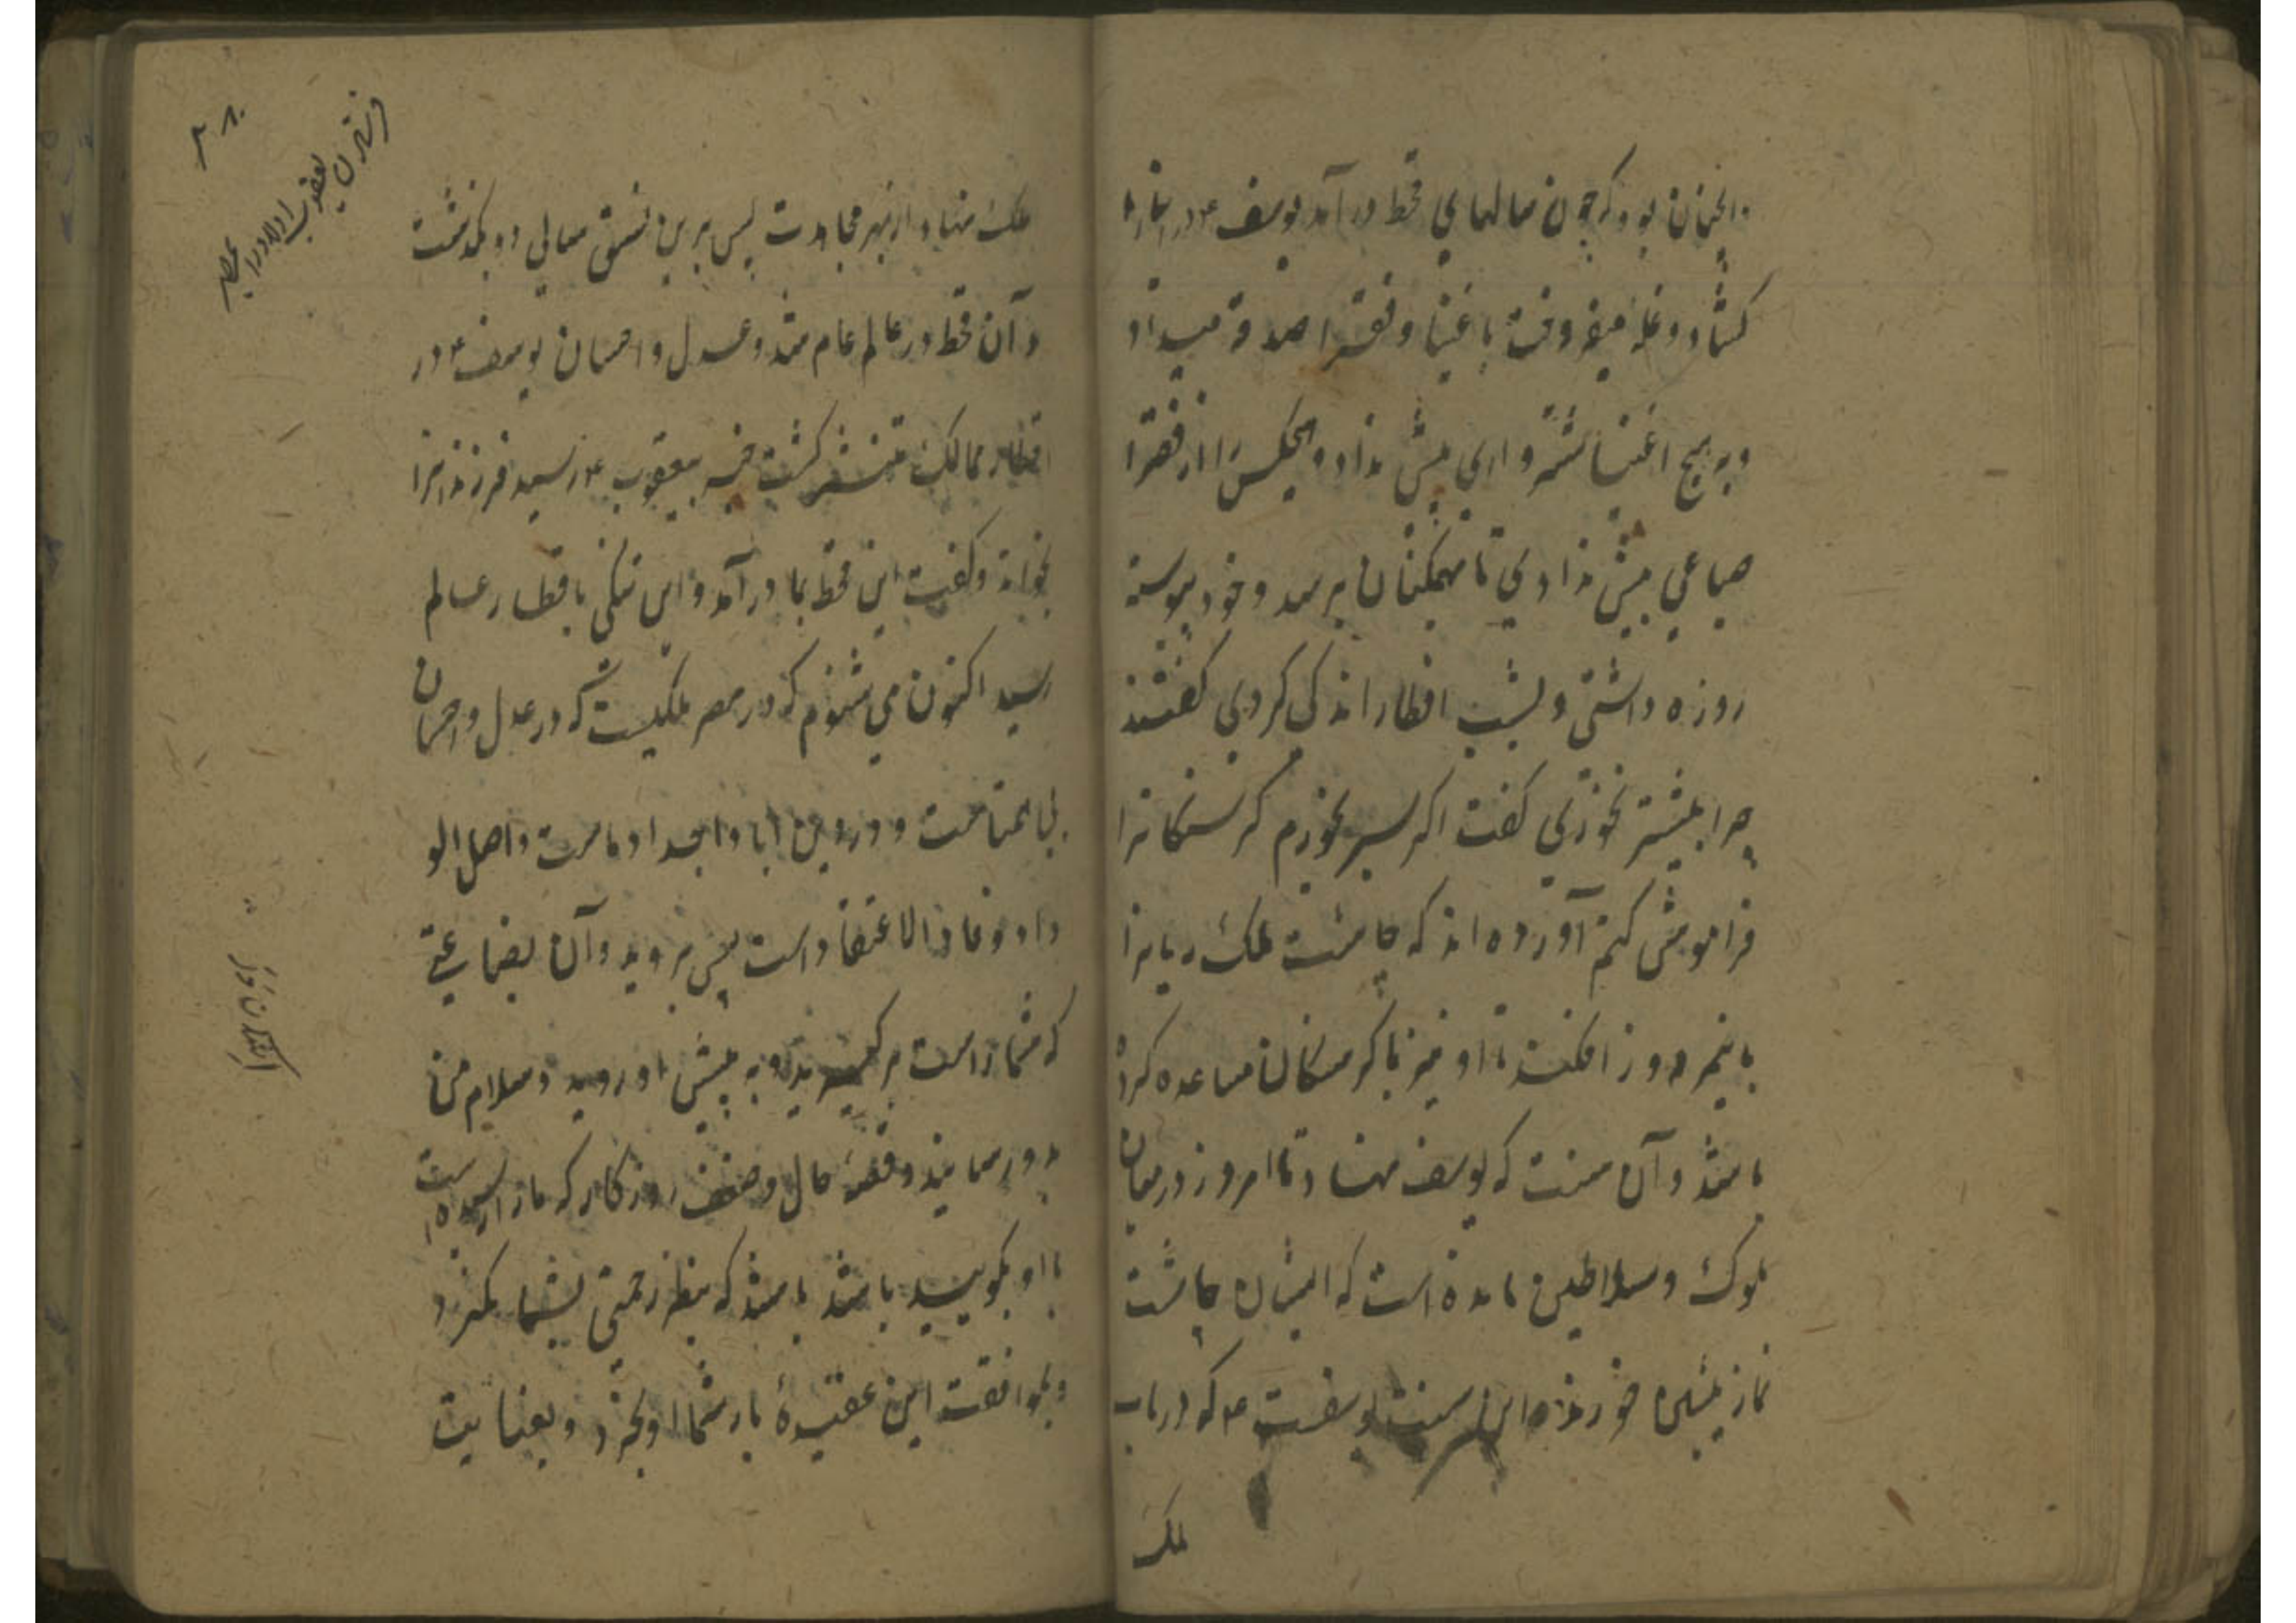 و انچنان بود که چون سالهای قحط درآمد یوسف ع در انبارها
کشاد و غله میفروخت باغنیا و فقرا صدقه میداد
و به هیچ اغنیا شتر واری بیش نداد و هیچکس را از فقرا
صاعی بیش ندادی تا بهمکنان برسد و خود پیوسته
روزه داشتی و بشب افطار اندکی کردی گفتند
چرا بیشتر نخوری گفت اگر سیر بخورم گرسنکانرا
فراموش کنم آورده اند که چاشت ملک ریانرا
با نیم روز افکند تا او نیز با گرسنکان مساعده کرده
باشد و آن سنت که یوسف نهاد تا امروز در میان
ملوک و سلاطین مانده است که ایشان چاشت
نماز پیشین خورند و این سنت یوسفست ع که در باب
ملک
ملک نهاد از بهر مجاهدت پس برین نسق سالی دو بگذشت
و آن قحط در عالم عام شد و عدل و احسان یوسف ع در
اقطار ممالک منتشر گشت خبر بیعقوب ع رسید فرزندانرا
بخواند و گفت این قحط بما درآمد و این تنکی باقطار عالم
رسید اکنون می شنوم که در مصر ملکیست که در عدل و احسان
بی همتاست و در دین ابا و اجداد ماست و اصل الو
داد و عاد الاعتقاد است پس بروید و آن بضاعتی
که شما راست برگیرید و به پیش او روید و سلام من
بدو رسانید و قصه حال و ضعف روزکار که ما را رسیده است
با او بگویید باشد باشد که بنظر رحمتی بشما نگرد
و بموافقت این عقیدهٔ بار شما او بخرد و بعنایت
۳۸۰
فرستادن یعقوب اولاد را بمصر